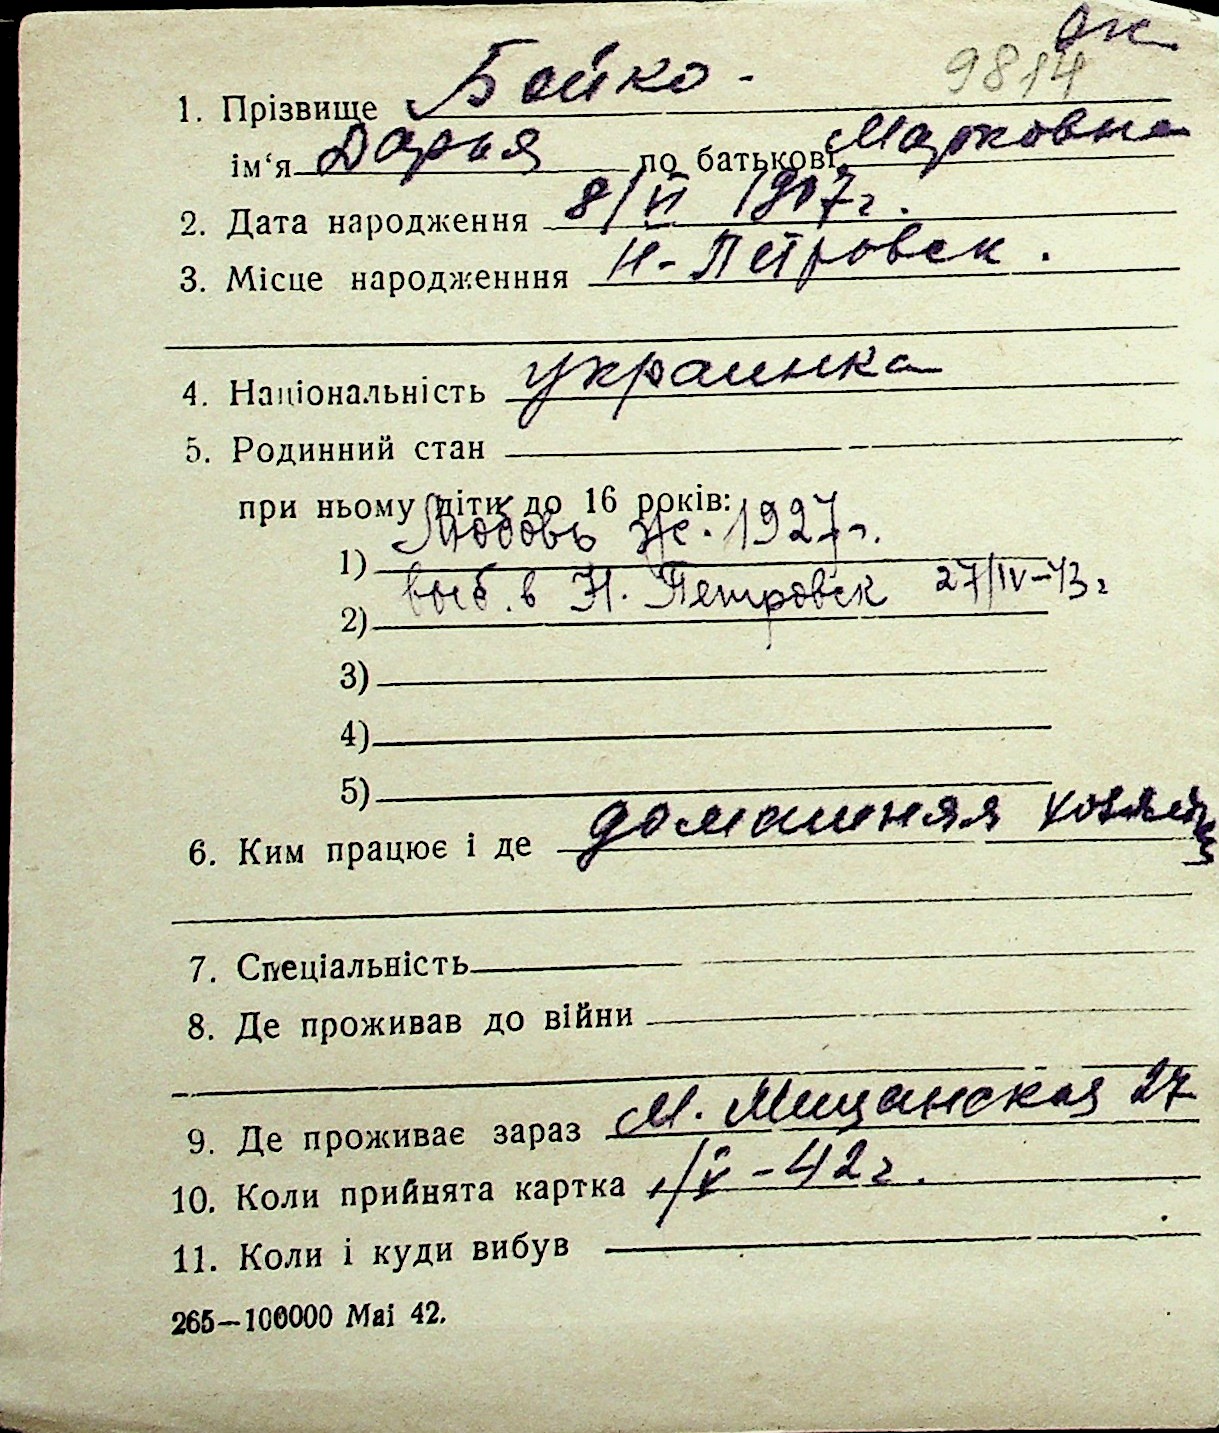 9814
1. Прізвище Бойко -
ім‘я Дарья по батькові Марковна
2. Дата народження 8/VI 1907 г.
3. Місце народженння Н-Петровск.
4. Національність украинка
5. Родинний стан
при ньому діти до 16 років:
1) Любовь ж. 1927 г.
2) выб. в Н. Петровск 27/IV-43 г
3)
4)
5)
6. Ким працює і де домашняя хозяйка
7. Спеціальність
8. Де проживав до війни
9. Де проживає зараз М. Мищанская 27
10. Коли прийнята картка 1/V-42 г.
11. Коли і куди вибув
265—100000 Маі 42.